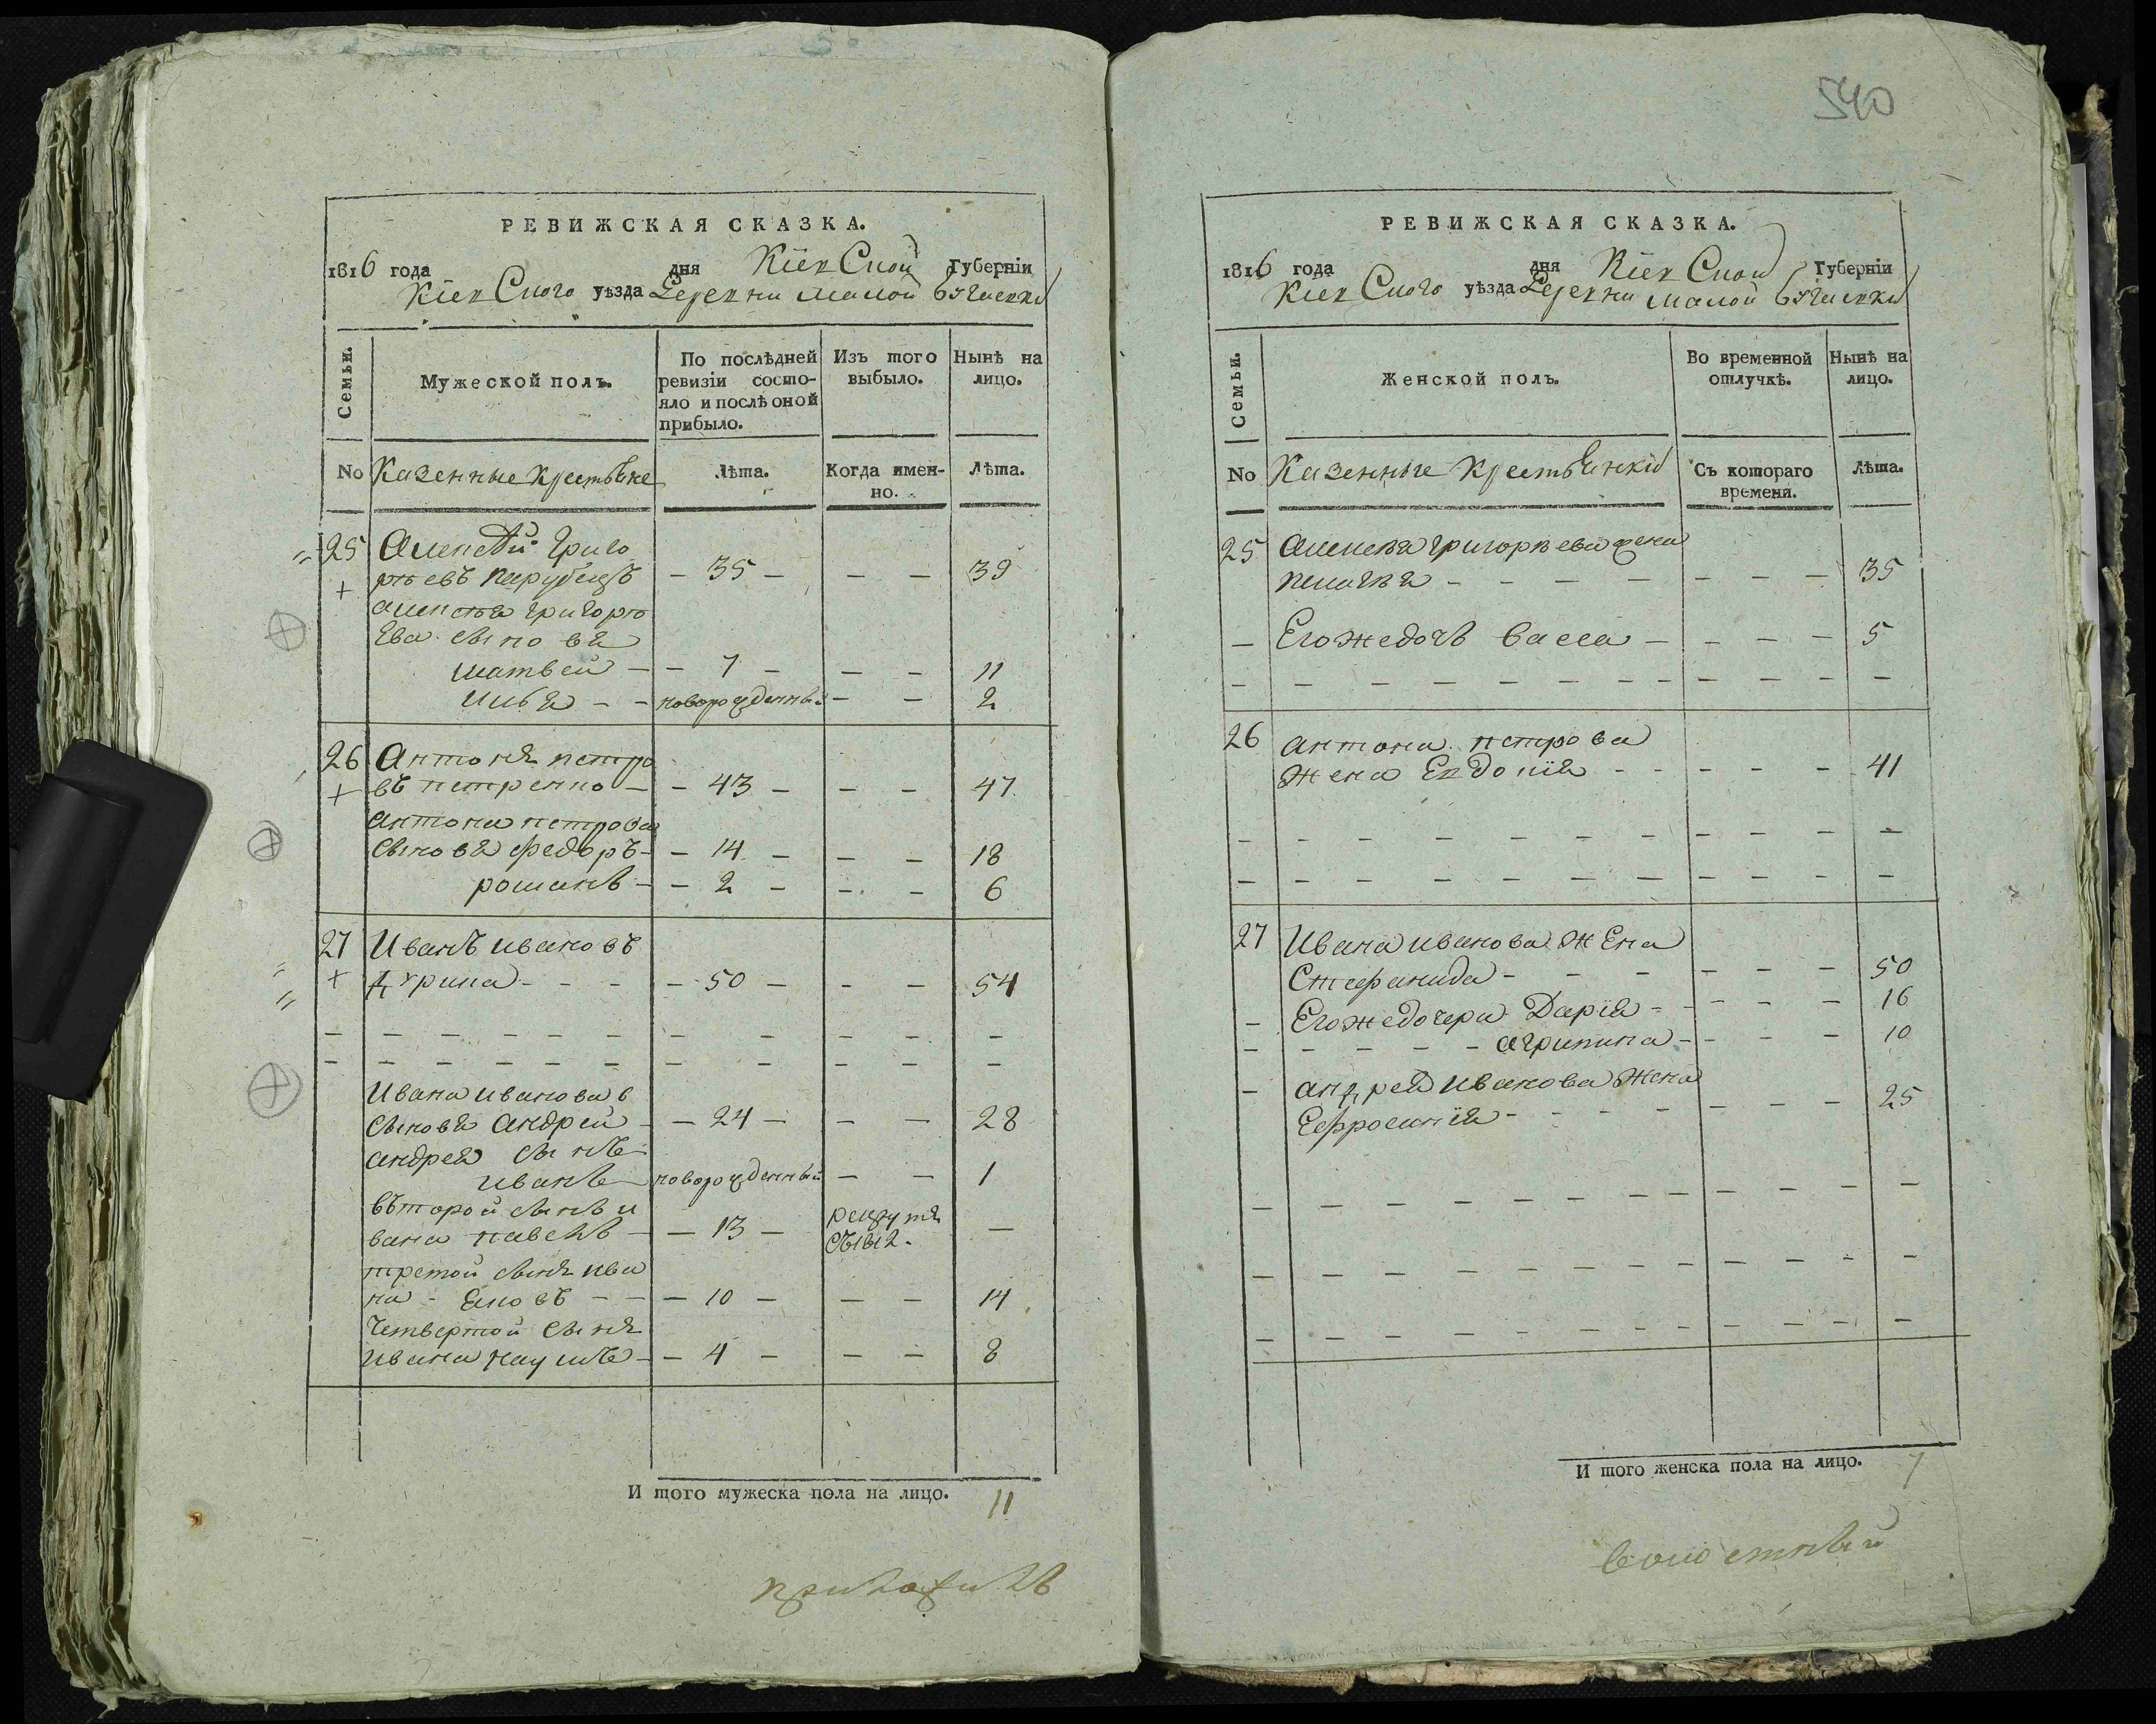 РЕВИЖСКАЯ СКАЗКА.
1816 года дня Кіевской Губерніи
Кіевского уѣзда Деревни малой бугаевки
Семьи. Мужеской полъ. По послѣдней ревизіи состояло и послѣ оной прибыло. Изъ того выбыло. Нынѣ на лицо.
No Казенные крестьяне Лѣта. Когда именно. Лѣта.
25 Алексѣй Григо
рьевъ – 35 – – – 39
алексѣя григорь
Ева сыновя
матвей – – 7 – – – 11
илья – – новорожденный – – 2
26 Антонъ петро
въ петренко – – 43 – – – 47
антона петрова
сыновя федоръ – – 14 – – – 18
романъ – – 2 – – – 6
27 Иванъ ивановъ
– – – – 50 – – – 54
– – – – – – – – – – –
– – – – – – – – – – –
Ивана иванова
сыновя андрей – – 24 – – – 28
андрея сынъ
иванъ новорожденный – – 1
въторой сынъ и
вана павелъ – – 13 – рекрутъ –
третой сынъ ива
на – Яковъ – – – 10 – – – 14
Четвертой сынъ
ивана наумъ – – 4 – – – 8
И того мужеска пола на лицо. 11
приложилъ
540
РЕВИЖСКАЯ СКАЗКА.
1816 года дня Кіевской Губерніи
Кіевского уѣзда Деревни малой бугаевки
Семьи. Женской полъ. Во временной отлучкѣ. Нынѣ на лицо.
No Казенные крестьянки Съ котораго времени. Лѣта.
25 алексѣя григорьева жена
– – – – – – – 35
– Егожедочь васса – – – – 5
– – – – – – – – – – – –
26 антона петрова
жена Евдокія – – – – – 41
– – – – – – – – – – – –
– – – – – – – – – – – –
27 Ивана иванова жена
Стефанида – – – – – – 50
– Егожедочери Дарія – – – – 16
– – – – – агрипина – – – – 10
– андрея иванова жена
Ефросинія – – – – – – – 25
– – – – – – – – – – – –
– – – – – – – – – – – –
– – – – – – – – – – – –
И того женска пола на лицо. 7
волостный